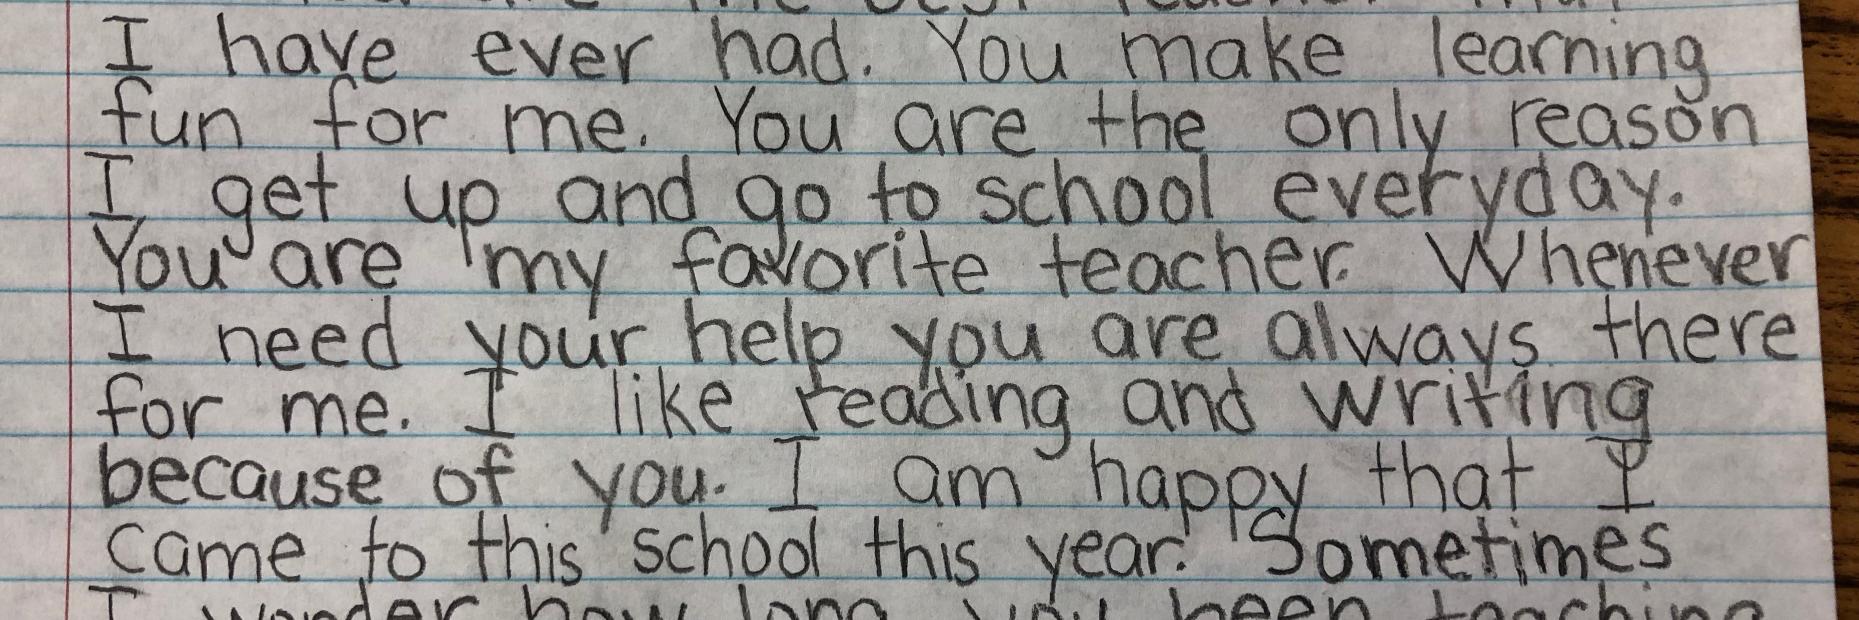 are the best teacher that
I have ever had. You make learning
fun for me. You are the only reason
I get up and go to school everyday.
You are my favorite teacher. Whenever
I need your help you are always there
for me. I like reading and writing
because of you. I am happy that I
came to this school this year. Sometimes
I wonder how long you been teaching